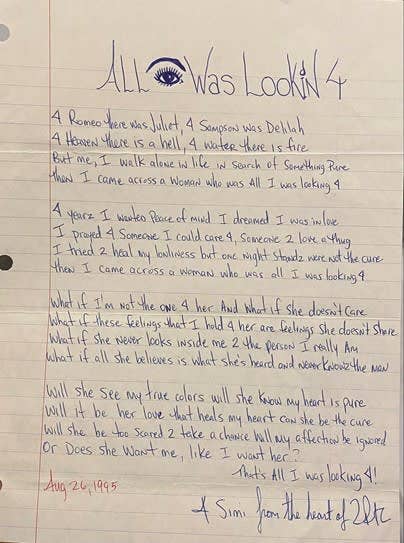 ALL 👁 Was LookiN 4
4 Romeo there was Juliet, 4 Sampson was Delilah
4 Heaven there is a hell, 4 water there is fire
But me, I walk alone in life in search of something Pure
then I came across a Woman who was All I was looking 4
4 yearz I wanted Peace of mind I dreamed I was in love
I prayed 4 Someone I could care 4, Someone 2 love a thug
I tried 2 heal my lonliness but one night Standz were not the cure
then I came across a woman who was all I was looking 4
What if I'm not the one 4 her. And what if she doesn't care
What if these feelings that I hold 4 her are feelings She doesn't Share
What if she never looks inside me 2 the person I really Am
What if all she believes is what she's heard and never Knowz the man
Will she See my true colors will she know my heart is pure
Will it be her love that heals my heart can she be the cure
Will she be too Scared 2 take a chance will my affection be ignored
Or Does she Want me, like I want her?
That's All I was looking 4!
Aug 26, 1995
4 Simi from the heart of 2PAC